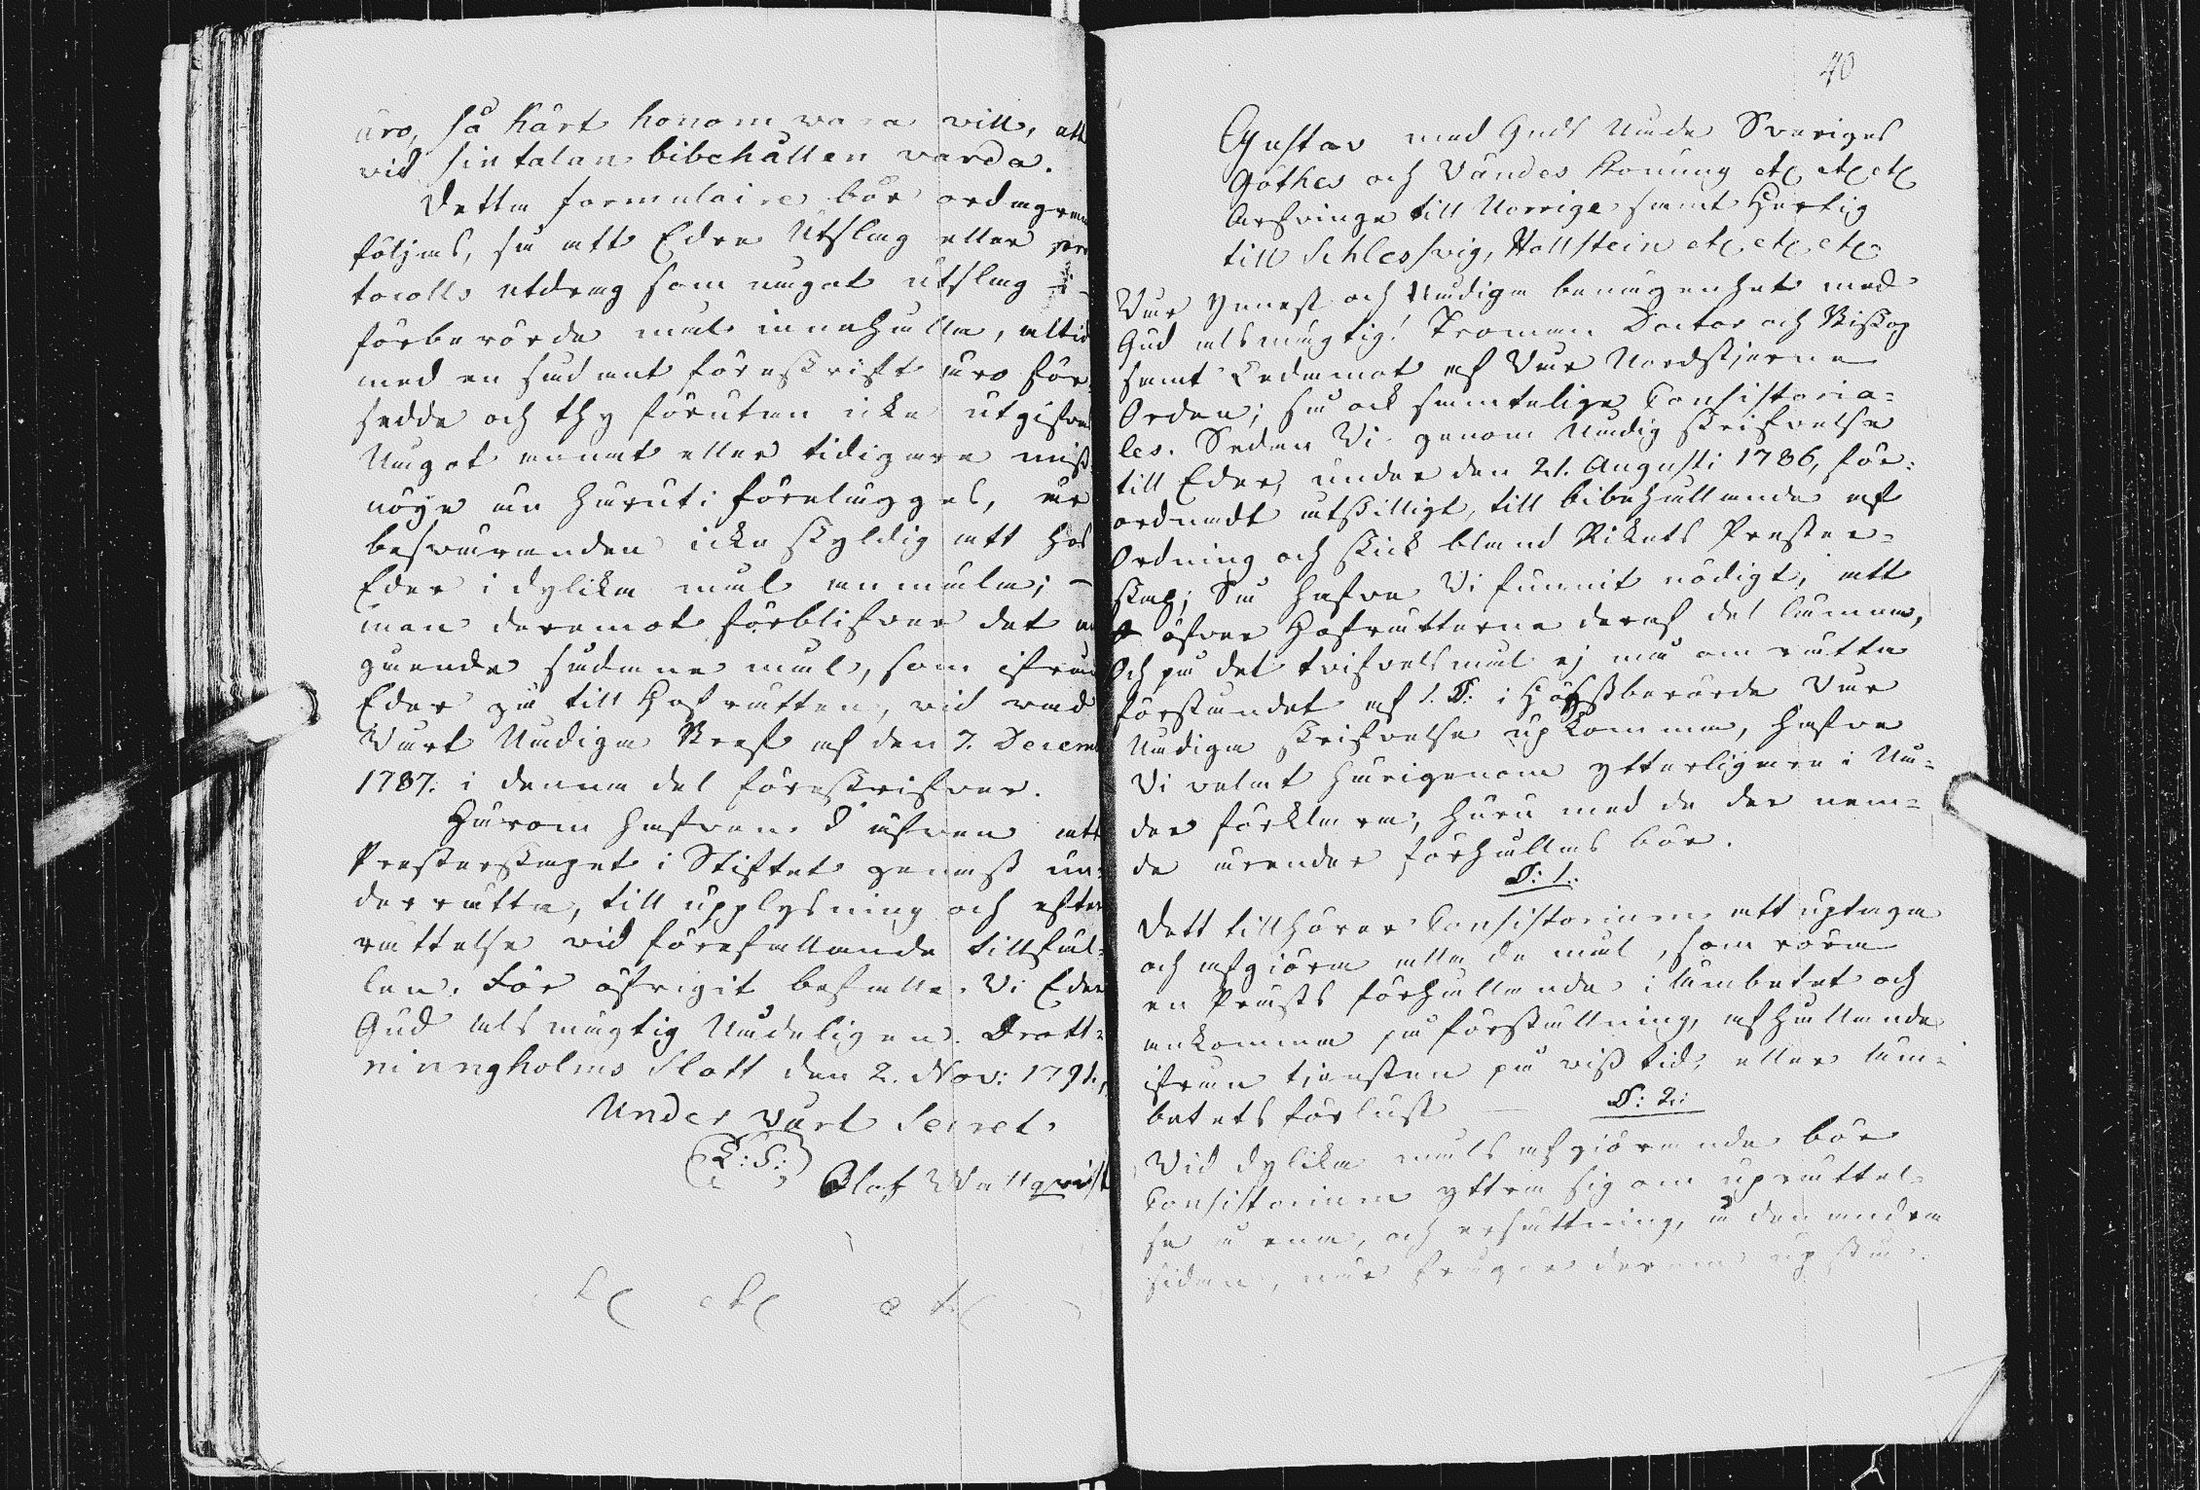 äro, så kärt honom vara vill, att
vid sin talan bibehållen varda.
Detta formulaire bör ordagrant
följas, så att Edra Utslag eller pro
tocolls utdrag som något utslag i
förberörda mål innehålla, altid
med en sådant föreskrift äro för-
sedda och thy förutan icke utgifvas
Något annat eller tidigare miss-
nöye än häruti förelägges, är
besvärenden icke skyldig att hos
Eder i dylika mål anmäla;
men deremot förblifver det an
gående sådane mål, som ifrån
Eder gå till Hofrätten, vid vad
Vårt Nådiga Bref af den 7. Decemb
1787. i denna del föreskrifver.
Härom hafven I äfven att
Presterskapet i Stiftet genast un-
derrätta, till upplysning och efter
rättelse vid förefallande tillfäl-
len. För öfrigit befalle Vi Eder
Gud alsmägtig Nådeligen. Drott-
ningholms Slott den 2. Nov: 1791.
Under Vårt Secret.
(L:S:)
Olof Wallqvist
etc etc etc
40
Gustav med Guds Nåde Sveriges
Göthes och Vändes Konung etc etc etc
Arfvinge till Norrige samt Hertig
till Schlessvig, Hollstein etc etc etc
Vår ynnest och Nådiga benägenhet med
Gud alsmägtig! Troman Doctor och Biskop
samt Ledamot af Vår Nordstjerne
Orden; så ock samtelige Consistoria-
les. Sedan Vi genom Nådig skrifvelse
till Eder, under den 21. Augusti 1786, för-
ordnadt utskilligt, till bibehållande af
Ordning och skick bland Rikets Prester-
skap; Så hafve Vi funnit nödigt, att
öfver Hofrätterne deraf del lämna,
Och på det tvifvelsmål ej må om rätta
förståndet af 1. §. i Högstberörde Vår
Nådiga skrifvelse upkomma, hafve
Vi velat härigenom ytterligare i Nå-
der förklara, huru med de der näm-
de ärender förhållas bör.
§: 1.
Dett tillhörer Consistorium att uptaga
och afgiöra alla de mål, som röra
en Prästs förhållande i ämbetet och
ankomma på föreställning, afhållande
ifrån tjensten på viss tid, eller äm-
betets förlust
§: 2:
Vid dylika måls afgiörande bör
Consistorium yttra sig om uprättel-
se å ena, och ersättning, å den andra
sidan, när frågor derom upstå.